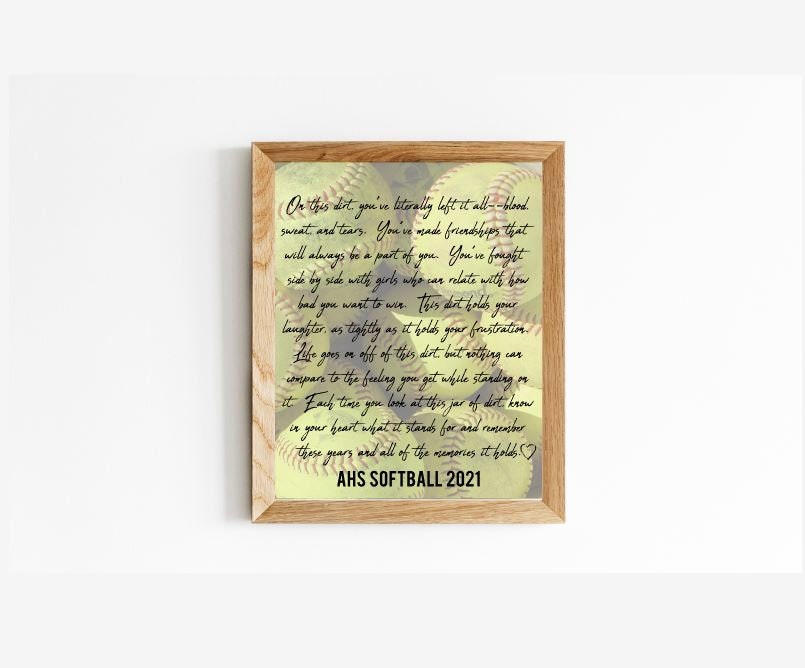 On this dirt, you've literally left it all--blood,
sweat, and tears. You've made friendships that
will always be a part of you. You've fought
side by side with girls who can relate with how
bad you want to win. This dirt holds your
laughter, as tightly as it holds your frustration.
Life goes on off of this dirt, but nothing can
compare to the feeling you get while standing on
it. Each time you look at this jar of dirt, know
in your heart what it stands for and remember
these years and all of the memories it holds.♡
AHS SOFTBALL 2021